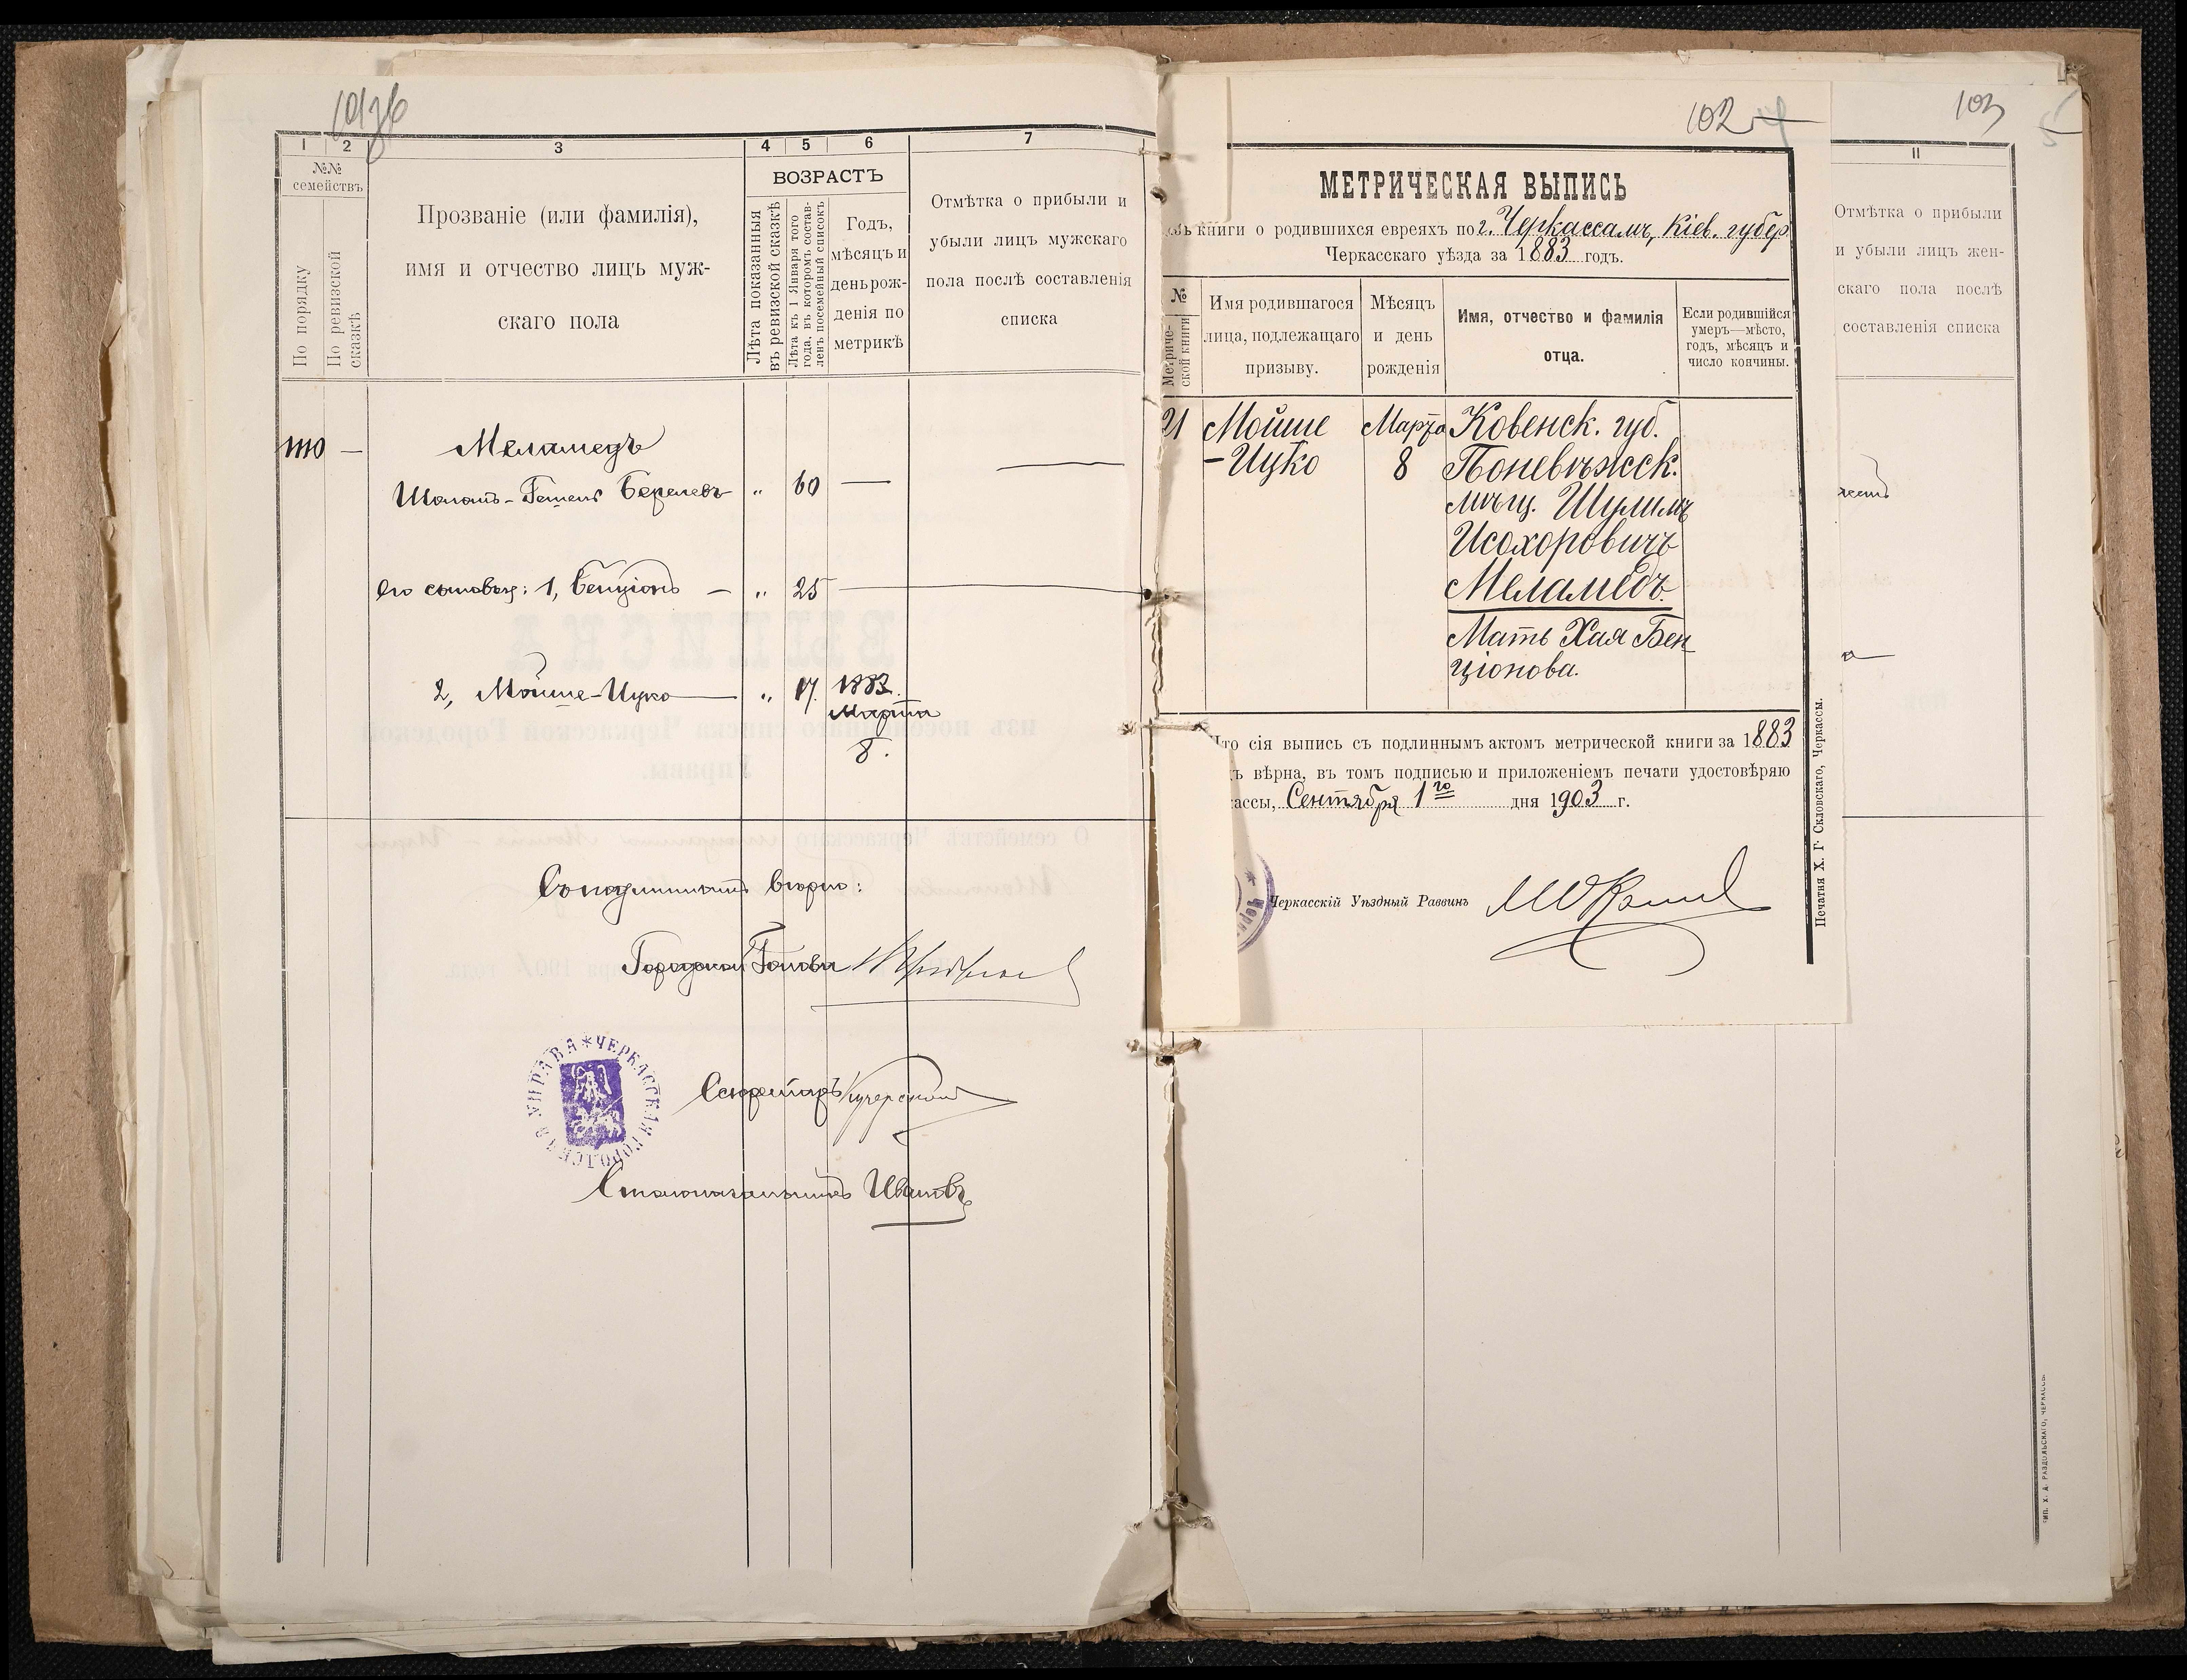 1 2 3 4 5 6 7
№№
семействъ
По порядку
По ревизской
сказкѣ
Прозваніе (или фамилія),
имя и отчество лицъ муж-
скаго пола
ВОЗРАСТЪ
Лѣта показанныя
въ ревизской сказкѣ
Лѣта къ 1 Января того
года, въ которомъ состав-
ленъ посемейный списокъ
Годъ,
мѣсяцъ и
день рож-
денія по
метрикѣ
Отмѣтка о прибыли и
убыли лицъ мужскаго
пола послѣ составленія
списка
Меламедъ
„ 60 —
Его сыновья: 1, Бенціонъ — „ 25 —
2, Мойше-Ицко — „ 17. 1883.
Марта
8.
Съ подлиннымъ вѣрно:
Городской Голова
ЧЕРКАССКАЯ ГОРОДСКАЯ УПРАВА
Секретарь
Столоначальникъ Ивановъ
102
МЕТРИЧЕСКАЯ ВЫПИСЬ
книги о родившихся евреяхъ по г. Черкассамъ, Кіев. губер
Черкасскаго уѣзда за 1883 годъ.
№
Метриче-
ской книги
Имя родившагося
лица, подлежащаго
призыву.
Мѣсяцъ
и день
рожденія
Имя, отчество и фамилія
отца.
Если родившійся
умеръ—мѣсто,
годъ, мѣсяцъ и
число кончины.
21 Мойше Марта Ковенск. губ.
-Ицко 8 Поневѣжск.
мѣщ. Шулимъ
Исохоровичъ
Меламедъ.
Мать Хая Бен
ціонова.
Что сія выпись съ подлиннымъ актомъ метрической книги за 1883
вѣрна, въ томъ подписью и приложеніемъ печати удостовѣряю
кассы, Сентября 1го дня 1903 г.
Черкасскій Уѣздный Раввинъ
Печатня Х. Г. Скловскаго, Черкассы.
103
11
Отмѣтка о прибыли
и убыли лицъ жен-
скаго пола послѣ
составленія списка